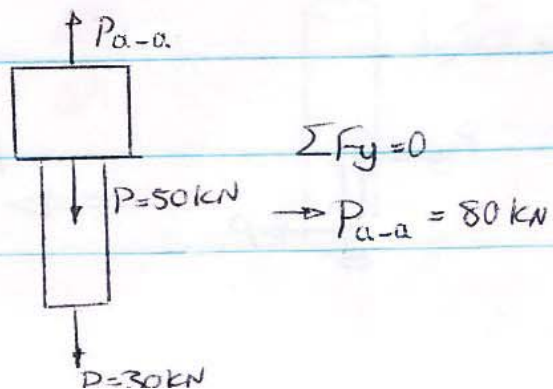 Pa-a
ΣFy=0
P=50KN → Pa-a = 80 kN
P=30KN